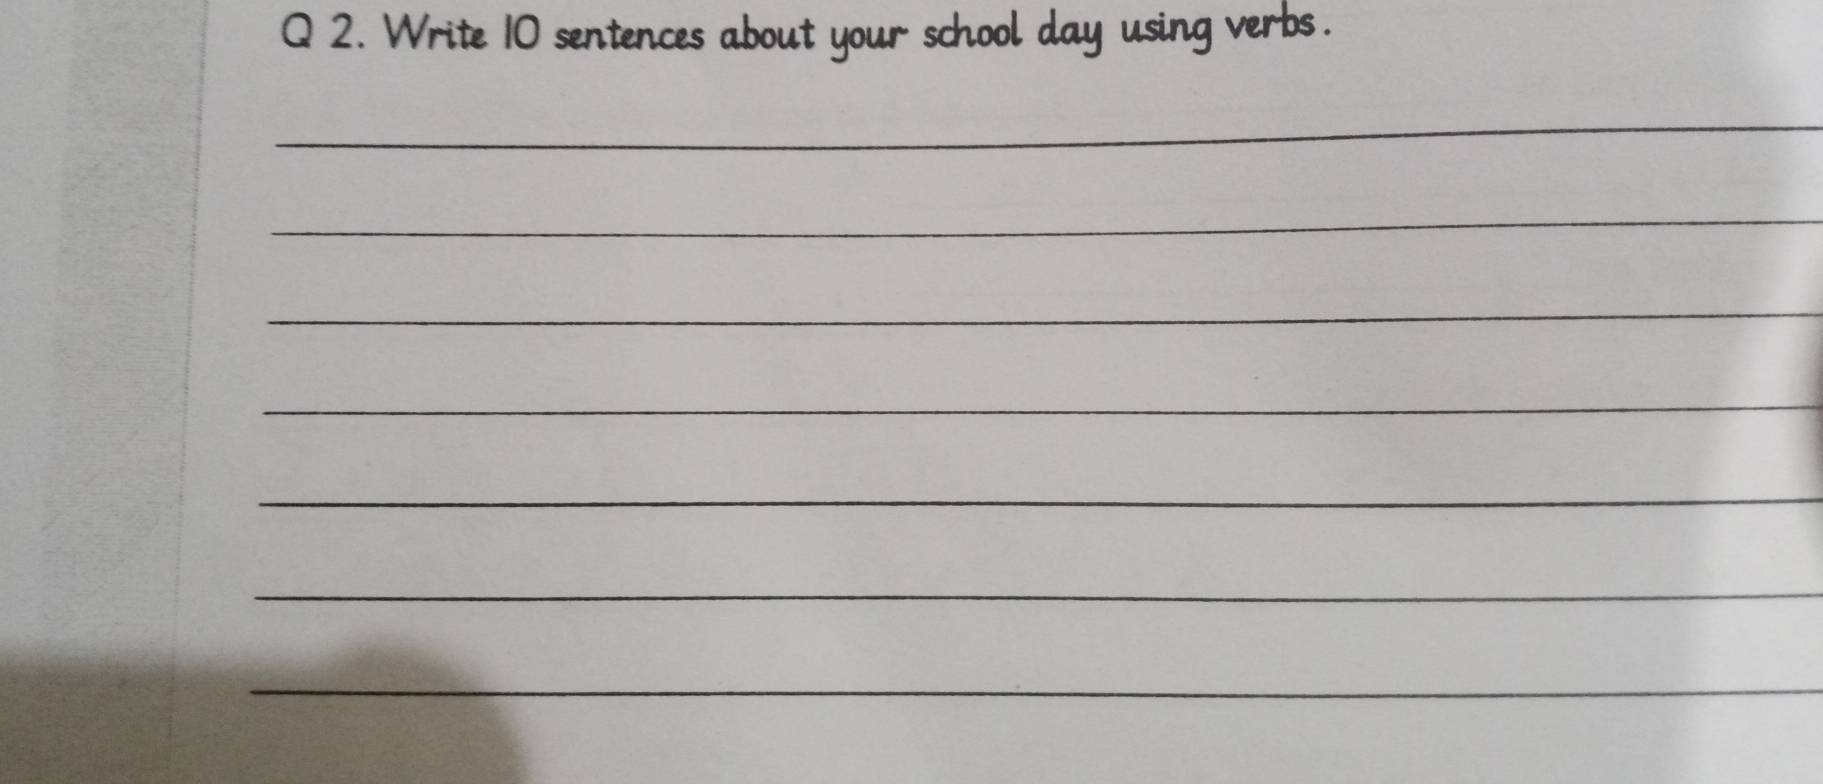 Q 2. Write 10 sentences about your school day using verbs.